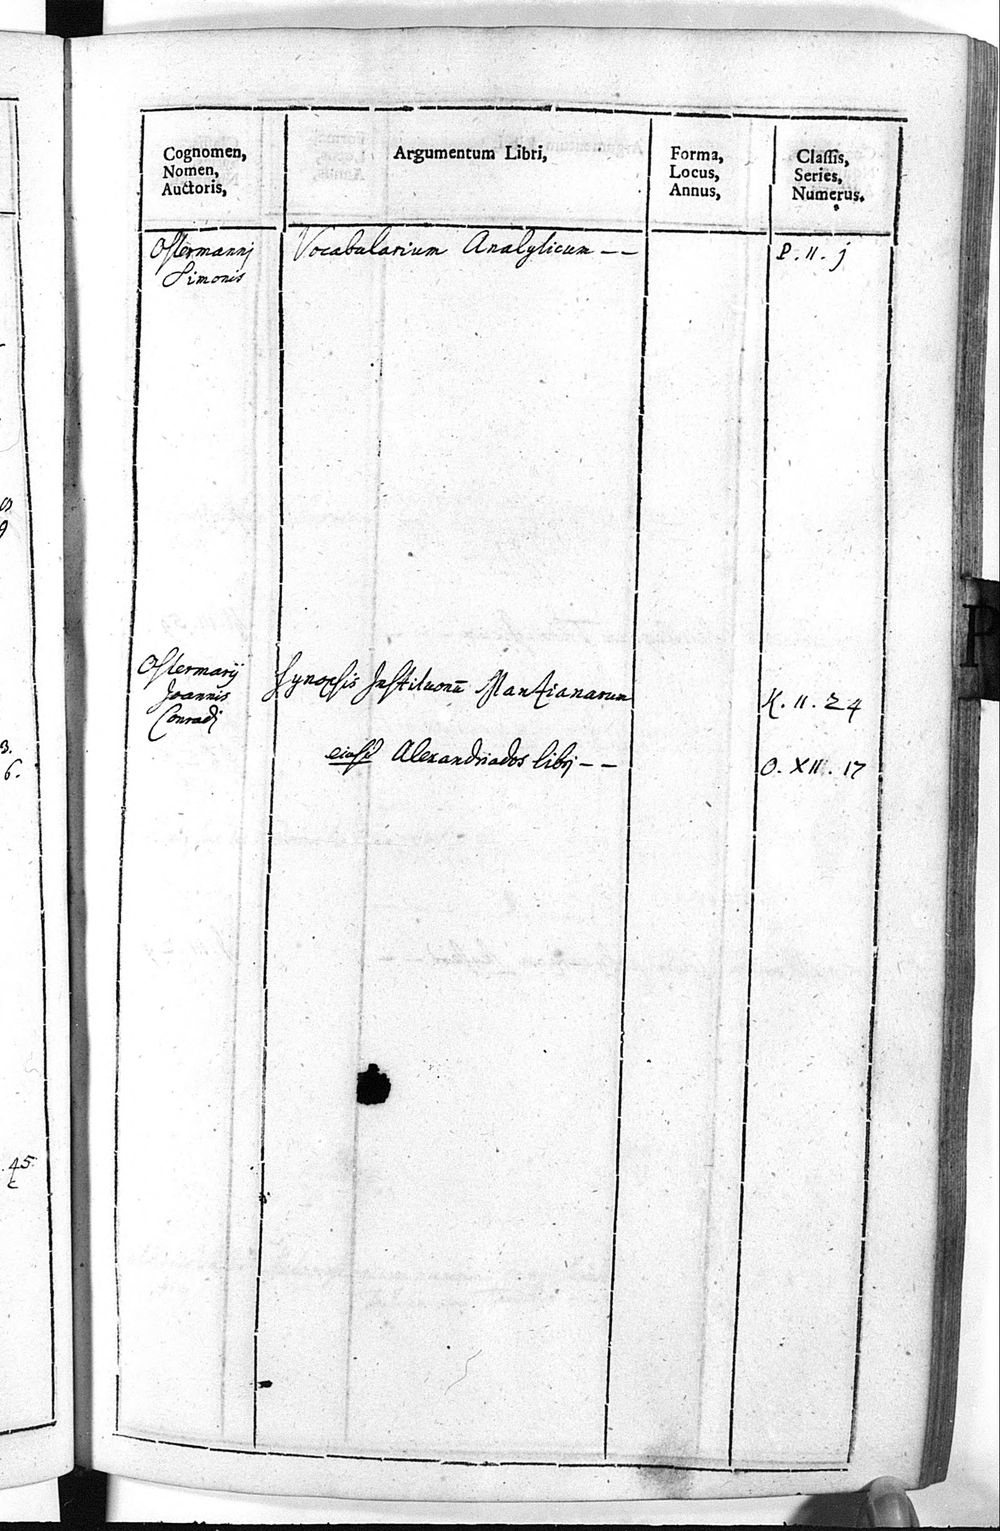 Cognomen,
Nomen,
Auctoris,
Argumentum Libri,
Forma,
Locus,
Annus,
Classis,
Series,
Numerus.
Ostermannj
Simonis
Vocabularium Analyticum --
P. II. j
Ostermarij
Joannis
Conradj
Synopsis Institutionũ
K. II. 24
eiusd Alexandriados librj --
O. XII. 17
3.
6.
45.
P